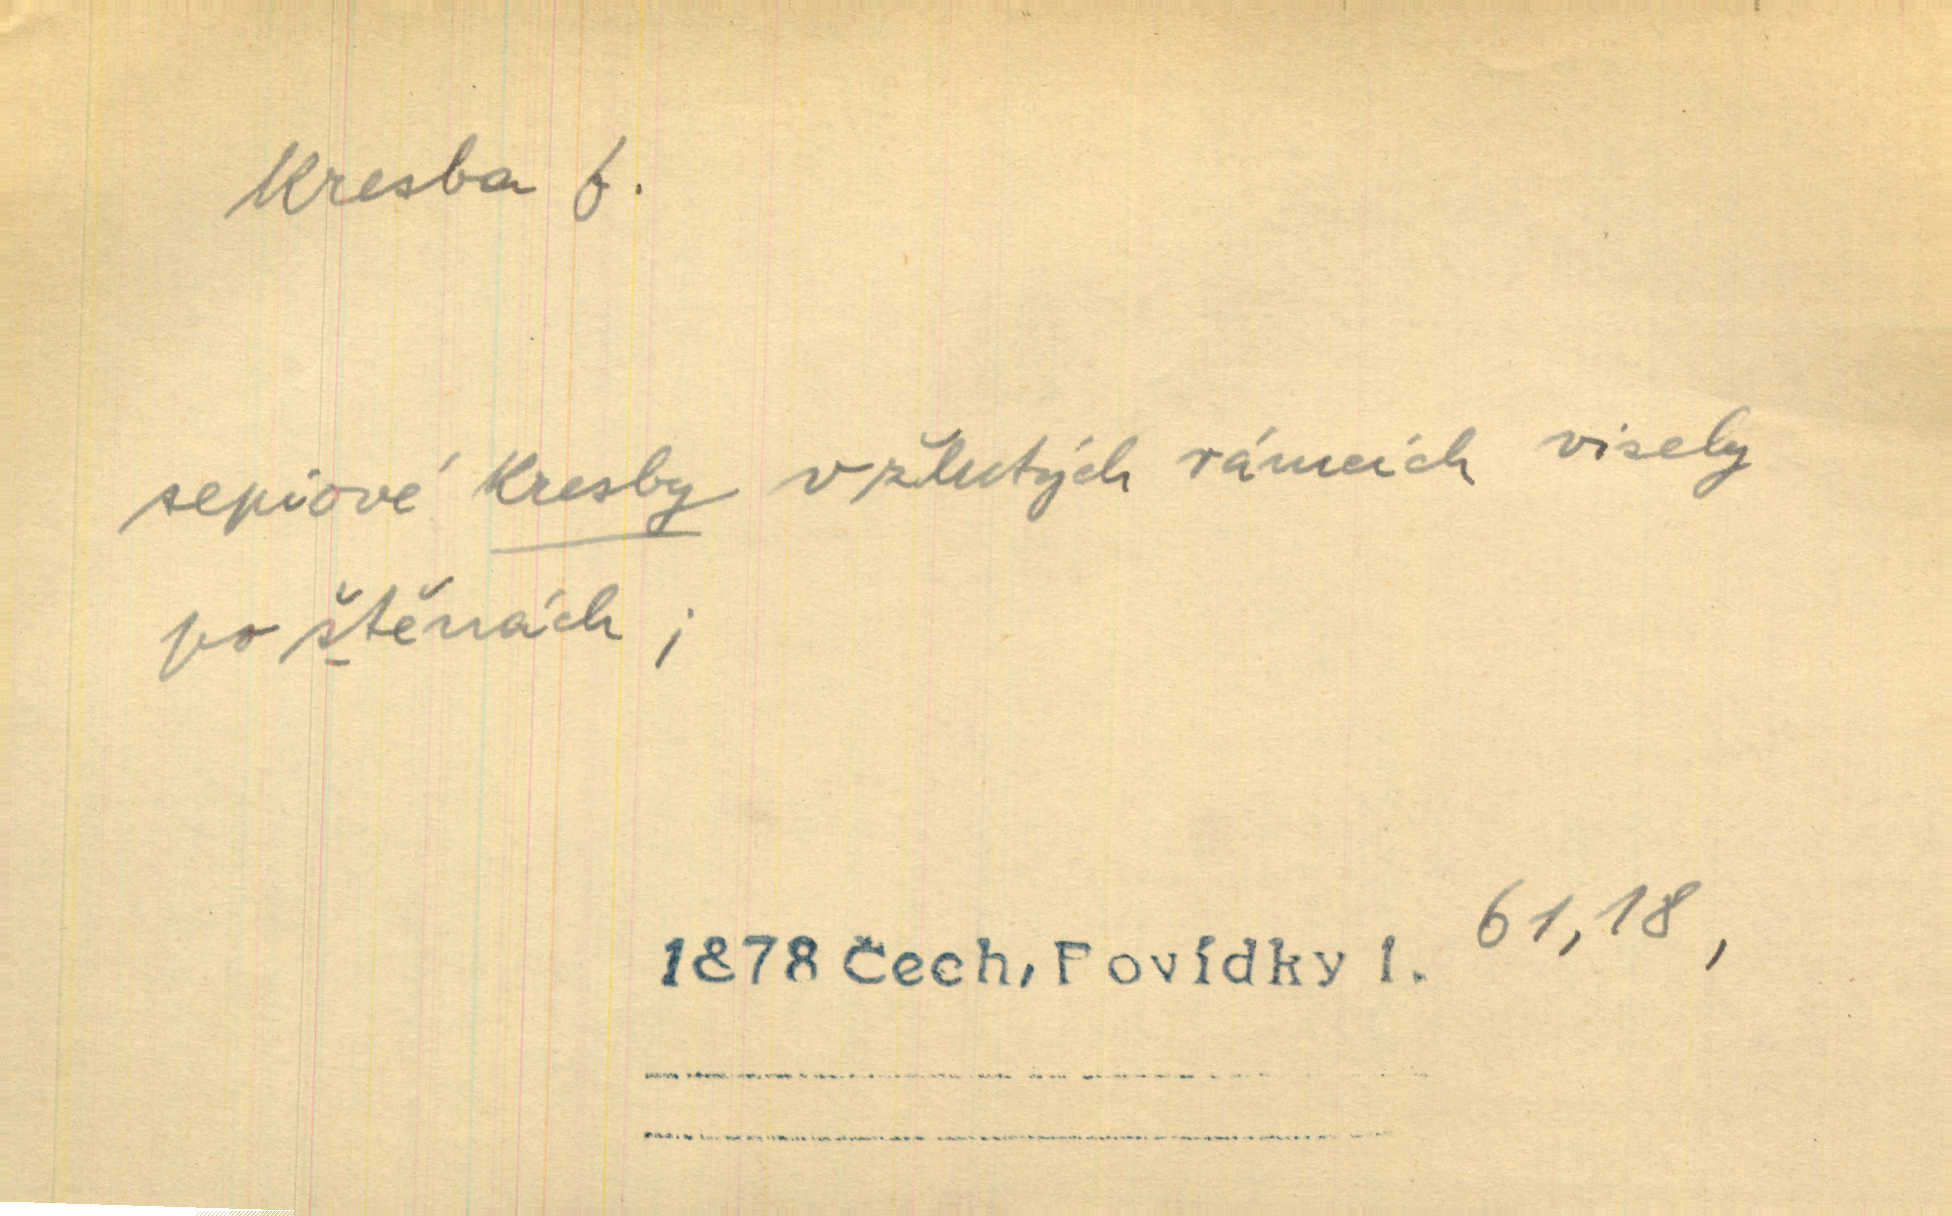 Kresba f.
sepiové kresby v žlutých rámcích visely
po štěnách;
1878 Čech, Povídky I. 61,18,